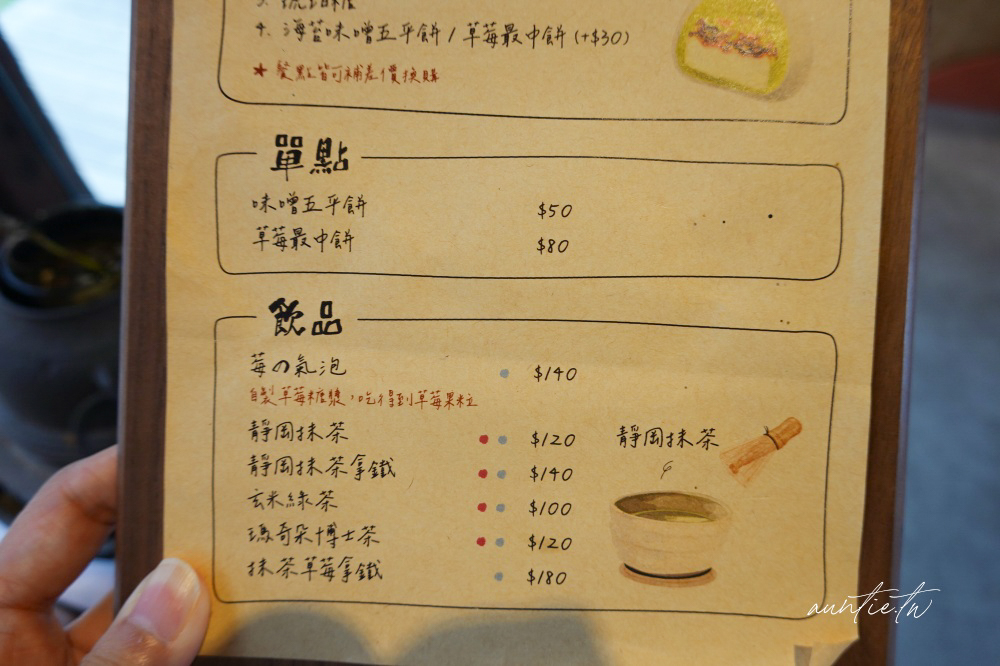 4. 海苔味噌五平餅 / 草莓最中餅 (+$30)
★ 餐點皆可補差價換購
單點
味噌五平餅 $50
草莓最中餅 $80
飲品
莓の氣泡 $140
自製草莓糖漿，吃得到草莓果粒
靜岡抹茶 $120
靜岡抹茶拿鐵 $140
玄米綠茶 $100
瑪奇朵博士茶 $120
抹茶草莓拿鐵 $180
靜岡抹茶
auntie.tw